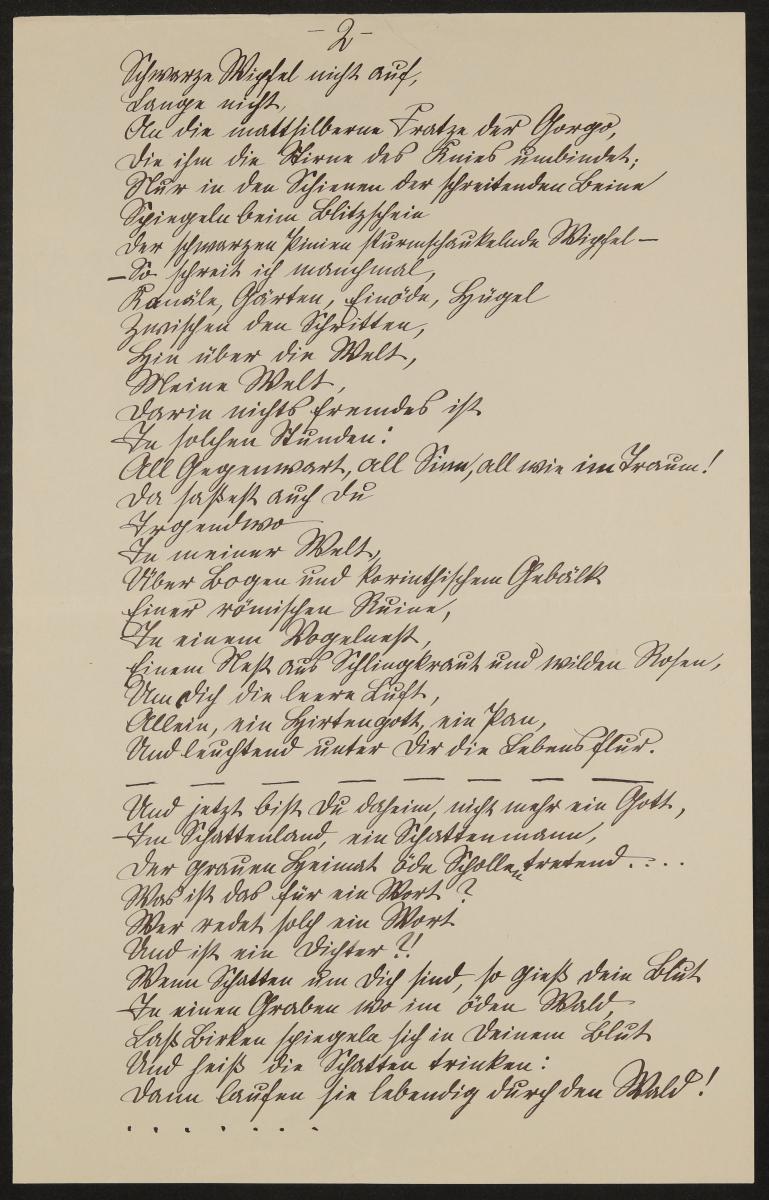 - 2 -
Schwarze Wipfel nicht auf,
Lange nicht,
An die mattsilberne Fratze der Gorgo,
Die ihm die Stirne des Knies umbindet;
Nur in den Schienen der schreitenden Beine
Spiegeln beim Blitzschein
Der schwarzen Pinien sturmschaukelnde Wipfel —
— So schreit ich manchmal,
Kanäle, Gärten, Einöde, Hügel
Zwischen den Schritten,
Hin über die Welt,
Meine Welt,
Darin nichts Fremdes ist
In solchen Stunden:
All Gegenwart, all Sinn, all wie im Traum!
Da saßest auch Du
Irgendwo
In meiner Welt,
Über Bogen und korinthischem Gebälk
Einer römischen Ruine,
In einem Vogelnest,
Einem Nest aus Schlingkraut und wilden Rosen,
Um Dich die leere Luft,
Allein, ein Hirtengott, ein Pan,
Und leuchtend unter Dir die Lebensflur.
— — — — — — — —
Und jetzt bist Du daheim, nicht mehr ein Gott,
Im Schattenland, ein Schattenmann,
Der grauen Heimat öde Schollen tretend . . . .
Was ist das für ein Wort?
Wer redet solch ein Wort
Und ist ein Dichter?!
Wenn Schatten um Dich sind, so gieß dein Blut
In einen Graben wo im öden Wald,
Laß Birken spiegeln sich in Deinem Blut
Und heiß die Schatten trinken:
Dann laufen sie lebendig durch den Wald!
. . . . . . . .